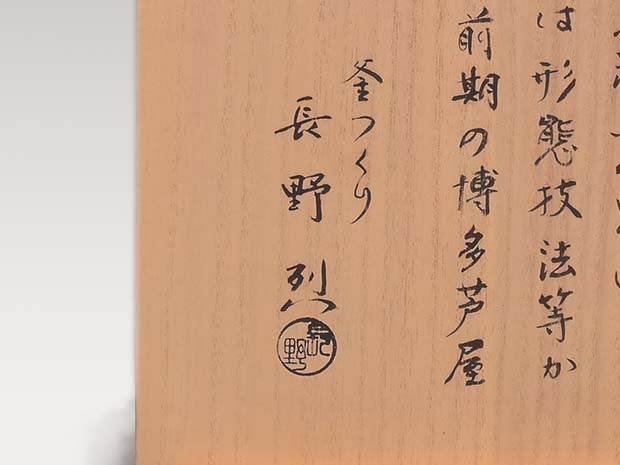 は形態技法等か
前期の博多芦屋
釜つくり
長野烈
長野